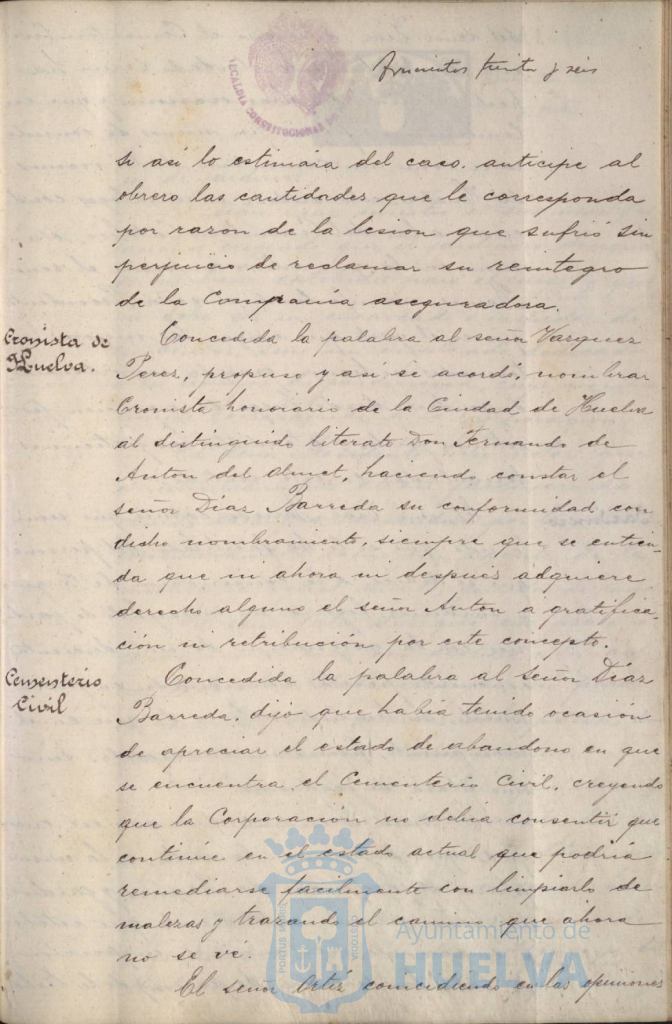 trescientos treinta y seis
ALCALDIA CONSTITUCIONAL DE
si así lo estimára del caso. anticipe al
obrero las cantidades que le corresponda
por razon de la lesion que sufrió sin
perjuicio de reclamar su reintegro
de la Compañia aseguradora.
Cronista de
Huelva.
Concedida la palabra al señor Vazquez
Perez, propuso y así se acordó, nombrar
Cronista honorario de la Ciudad de Huelva
al distinguido literato Don Fernando de
Anton del Olmet, haciendo constar el
señor Díaz Barreda su conformidad con
dicho nombramiento, siempre que se entien-
da que ni ahora ni despues adquiere
derecho alguno el señor Anton a gratifica-
ción ni retribución por este concepto.
Cementerio
Civil
Concedida la palabra al señor Díaz
Barreda, dijo que había tenido ocasión
de apreciar el estado de abandono en que
se encuentra el Cementerio Civil, creyendo
que la Corporación no debía consentir que
continúe en el estado actual que podría
remediarse facilmente con limpiarlo de
malezas y trazando el camino que ahora
no se vé.
El señor Ortíz coincidiendo en las opiniones
PORTUS MARIS ET TERRÆ CUSTODIA
Ayuntamiento de
HUELVA